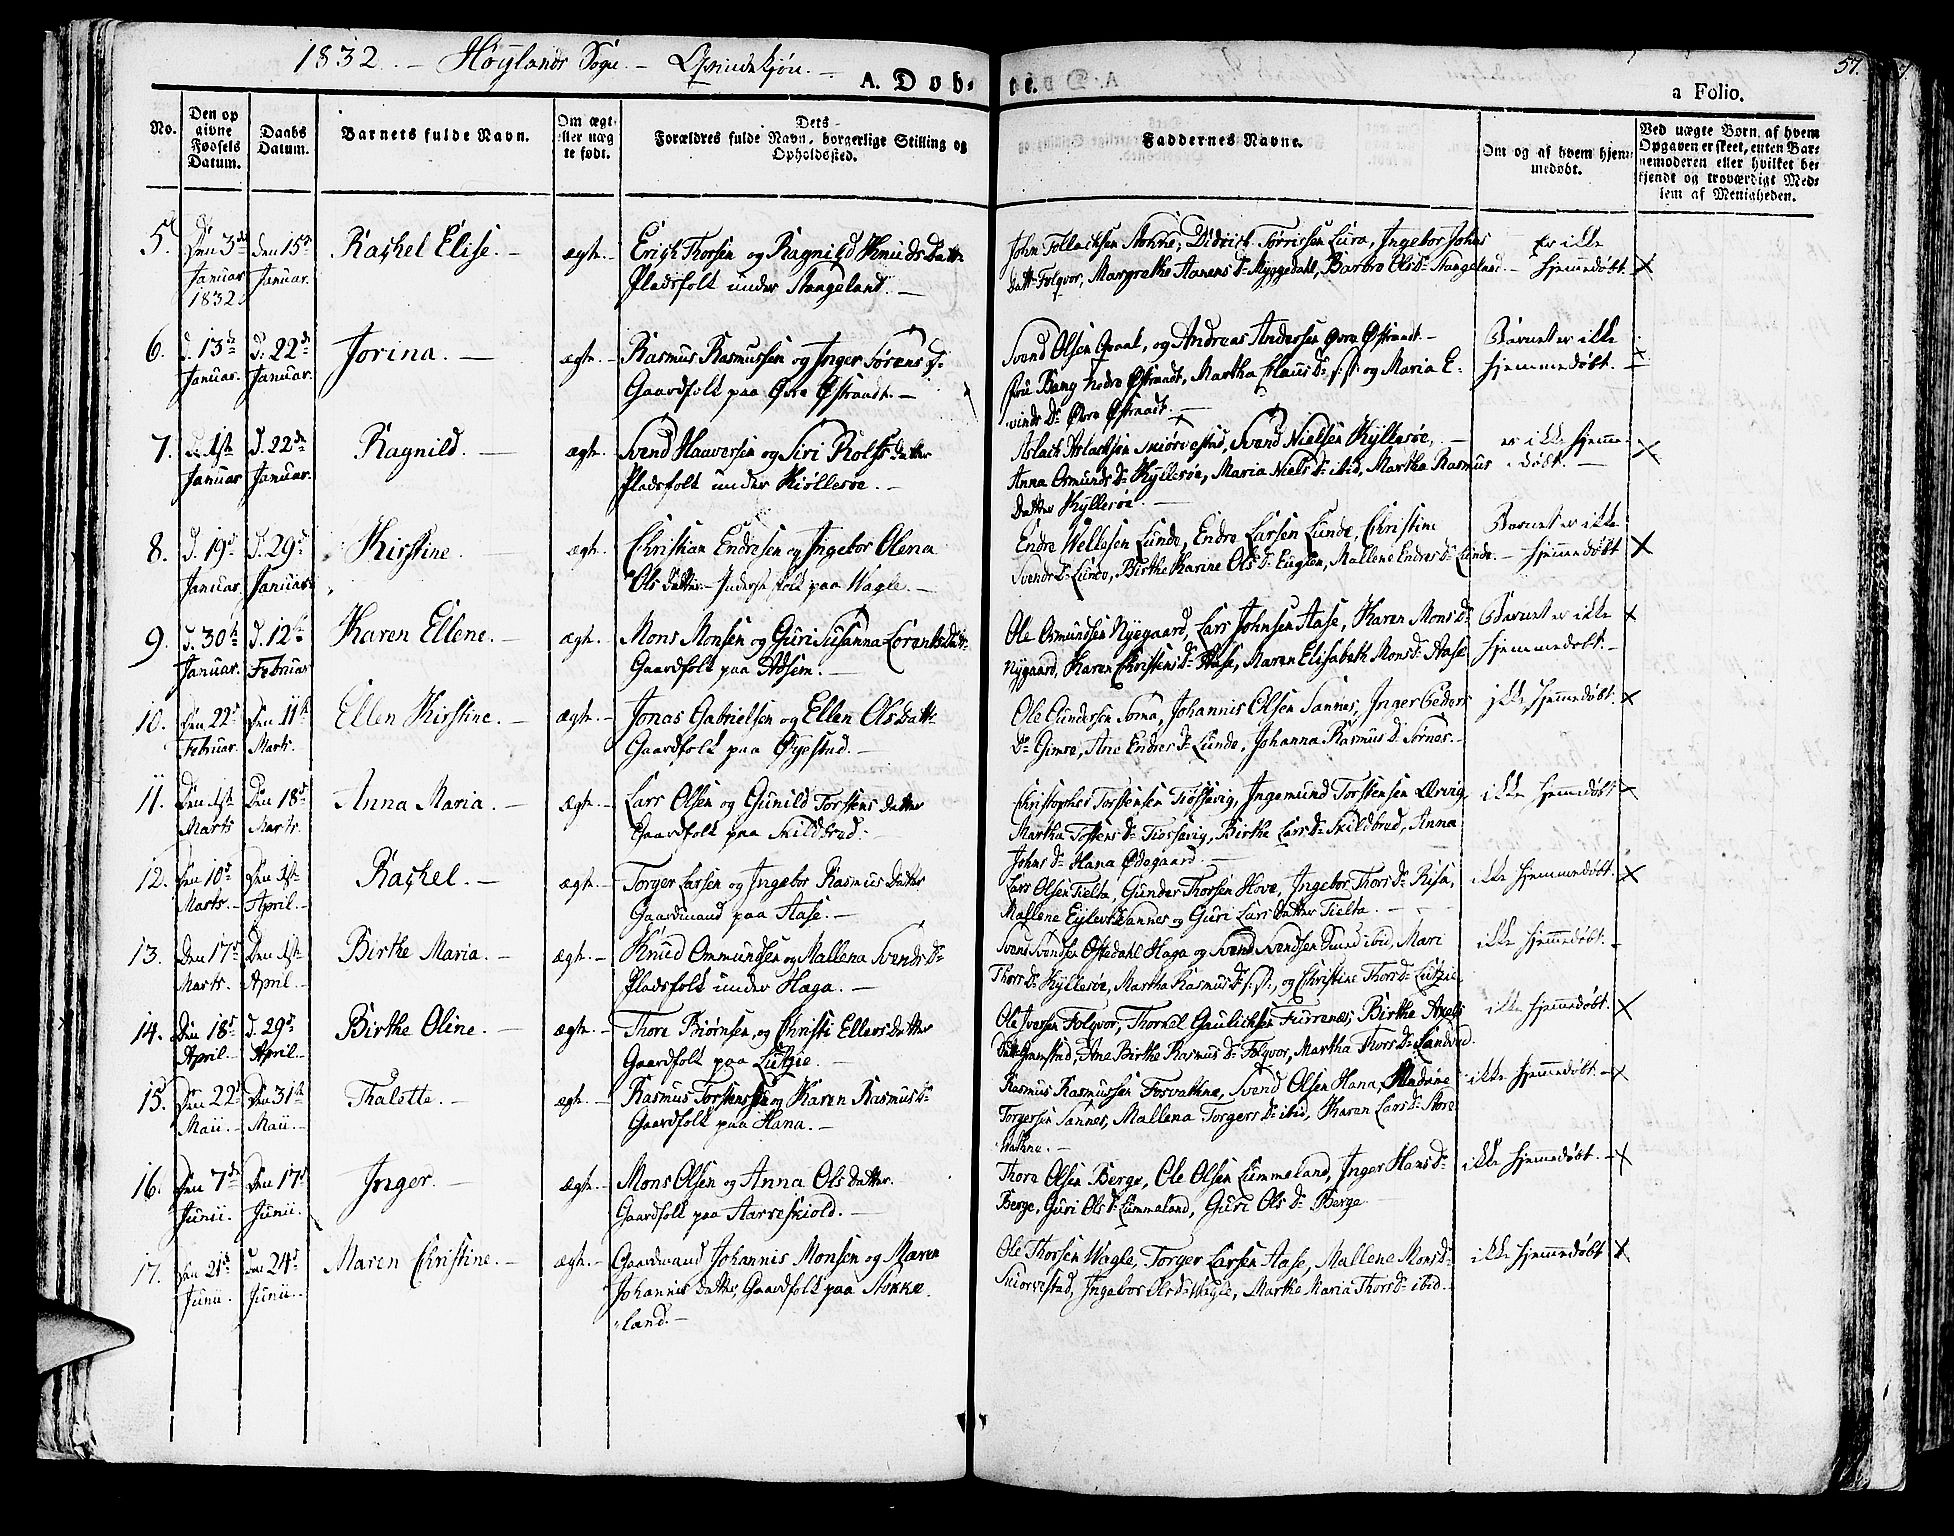 1832. - Høylands Sogn. - Qvindekjøn. -
57.
A. Døb- te.
a Folio.
No.
Den op
givne
Fødsels
Datum.
Daabs
Datum.
Barnets fulde Navn.
Om ægte
eller uæg
te født.
Dets
Forældres fulde Navn, borgerlige Stilling og
Opholdssted.
Faddernes Navne.
Om og af hvem hjem
medøbt.
Ved uægte Børn, af hvem
Opgaven er skeet, enten Bar-
nemoderen eller hvilket be-
kjendt og troværdigt Med-
lem af Menigheden.
5. Den 3de Januar 1832. den 15de Januar. Rachel Elise. - ægte. -
Erich Thorsen og Ragnild Knuds Datter
Pladsfolk under Stangeland. -
John Tollachsen Stokke, Didrich Tørrissen Lura, Ingebor Johns
Datter Folqvor, Margrethe Aanens Dr Myggedahl, Barbro Ols Dr Stangeland. -
Er ikke
hjemmedøbt. X
6. d. 13de Januar. D. 22de Januar. Jorina. - ægte. -
Rasmus Rasmussen og Inger Sørens D.
Gaardfolk paa Øvre Østraadt. -
Svend Olsen Graal, og Andreas Andersen øvre Østraadt. -
fru Bang nedre Østraadt, Martha Claus Dr s: st: og Maria E-
vinds Dr Øvre Østraadt. -
Barnet er ikke
hjemmedøbt. -
7. d. 1ste Januar D. 22de Januar. Ragnild. - ægte. -
Svend Haaversen og Siri Rolfs datter
Pladsfolk under Kiøllesøe. -
Aslach Aslachsen Skiørvestad, Svend Nielsen Kyllesøe, -
Anna Osmunds Dr Kyllesøe, Maria Niels Dr ibid, Martha Rasmus
Datter Kyllesøe. -
er ikke hjemme-
døbt. - X
8. d. 19de Januar. D. 29de Januar. Kirstine. ægte. -
Christian Endresen og Ingebor Olena
Ols datter - Inderst folk paa Vagle. -
Endre Lunde, Endre Larsen Lunde, Christine
Svends Dr Lunde, Birthe Karine Ols Dr Malene Endres Dr Lunde. -
Barnet er ikke
hjemmedøbt X
9. d. 30te Januar. D. 12te Februar Karen Ellene. - ægte. -
Mons Monsen og Guri Susanna Lorents Datter
Gaardfolk paa Adsem. -
Ole Osmundsen Nygaard, Lars Johnsen Aase, Karen Mons Dr
Nygaard, Karen Christens Dr Aase, Maren Elisabeth Mons Dr Aase
Barnet er ikke
hjemmedøbt. - X
10. den 22de Februar. Den 11te Marts. Ellen Kirstine. - ægte. -
Jonas Gabrielsen og Ellen Ols Datter
Gaardfolk paa Øyestad. -
Ole Gundersen Soma, Johannis Olsen Sannes, Inger Peders
Dr Gimre, Ane Endres Dr Lunde, Johanna Rasmus D. Sørnes. -
ikke hjemmedøbt. X
11. Den 1ste Marts Den 18de Marts. Anna Maria. - ægte. -
Lars Olsen og Gunild Torstens datter
Gaardfolk paa Skildbred. -
Christopher Torstensen Tiøssevig, Ingemund Torstensen
Martha Tostens Dr Tiossevig, Birthe Lars Dr Skildbred, Anna
Johns Dr Hana Ødegaard. -
ikke hjemmedøbt X
12. den 10de Marts. - Den 1ste April. - Rachel. - ægte. -
Torger Larsen og Ingebor Rasmus Datter
Gaardmand paa Aase. -
Lars Olsen Tielta, Gunder Thorsen Hove, Ingebor Thors Dr Risa,
Mallene Eylers Dr Sannes og Guri Lars datter Tielta. -
ikke hjemmedøbt. X
13. Den 17de Marts. Den 1ste April. - Birthe Maria. - ægte. -
Knud Ommundsen og Mallena Svends Dr
Pladsfolk under Haga. -
Svend Svendsen Oftedahl Haga og Svend Svendsen ibid, Mari
Thors Dr Kyllesøe, Martha Rasmus Dr s: st:, og Christine Thors Dr Lutzie
ikke hjemmedøbt. -
14. Den 18de April. - D. 29de April. - Birthe Oline. - ægte. -
Thore Biørnsen, og Christi Ellers Datter
Gaardfolk paa Lutzie. -
Ole Iversen Folqvor, Thorkel Gaulichsen Furrenæs, Birthe Axels
Datter Gamstad, Ana Birthe Rasmus Dr Folqvor, Martha Thors Dr Sandved.
ikke hjemmedøbt. X
15. Den 22de Maii. - Den 31te Maii. - Thalette. - ægte. -
Rasmus Torstenssen og Karen Rasmus Dr
Gaardfolk paa Hana. -
Rasmus Rasmussen Fosvathne, Svend Olsen Hana,
Torgersen Sannes, Mallena Torgers Dr ibid, Karen Lars Dr Store
vatne. -
ikke hjemmedøbt. - X
16. Den 7de Junii. Den 17de Junii. Inger. - ægte. -
Mons Olsen og Anna Ols datter.
Gaardfolk paa Aarreskiold. -
Thore Olsen Berge, Ole Olsen Lummeland, Inger Hans Dr
Berge, Guri Ols Dr Lummeland, Guri Ols Dr Berge
ikke hjemmedøbt. - X
17. den 21de Junii. den 24de Junii. - Maren Christine. - ægte. -
Gaardmand Johannis Monsen og Maren
Johannis datter, Gaardfolk paa Stokke-
land. -
Ole Thorsen Wagle, Torger Larsen Aase, Mallene Mons Dr
Skiorvestad, Ingebor Ols Dr Wagle, Marthe Maria Thors Dr ibid. -
ikke hjemmedøbt X